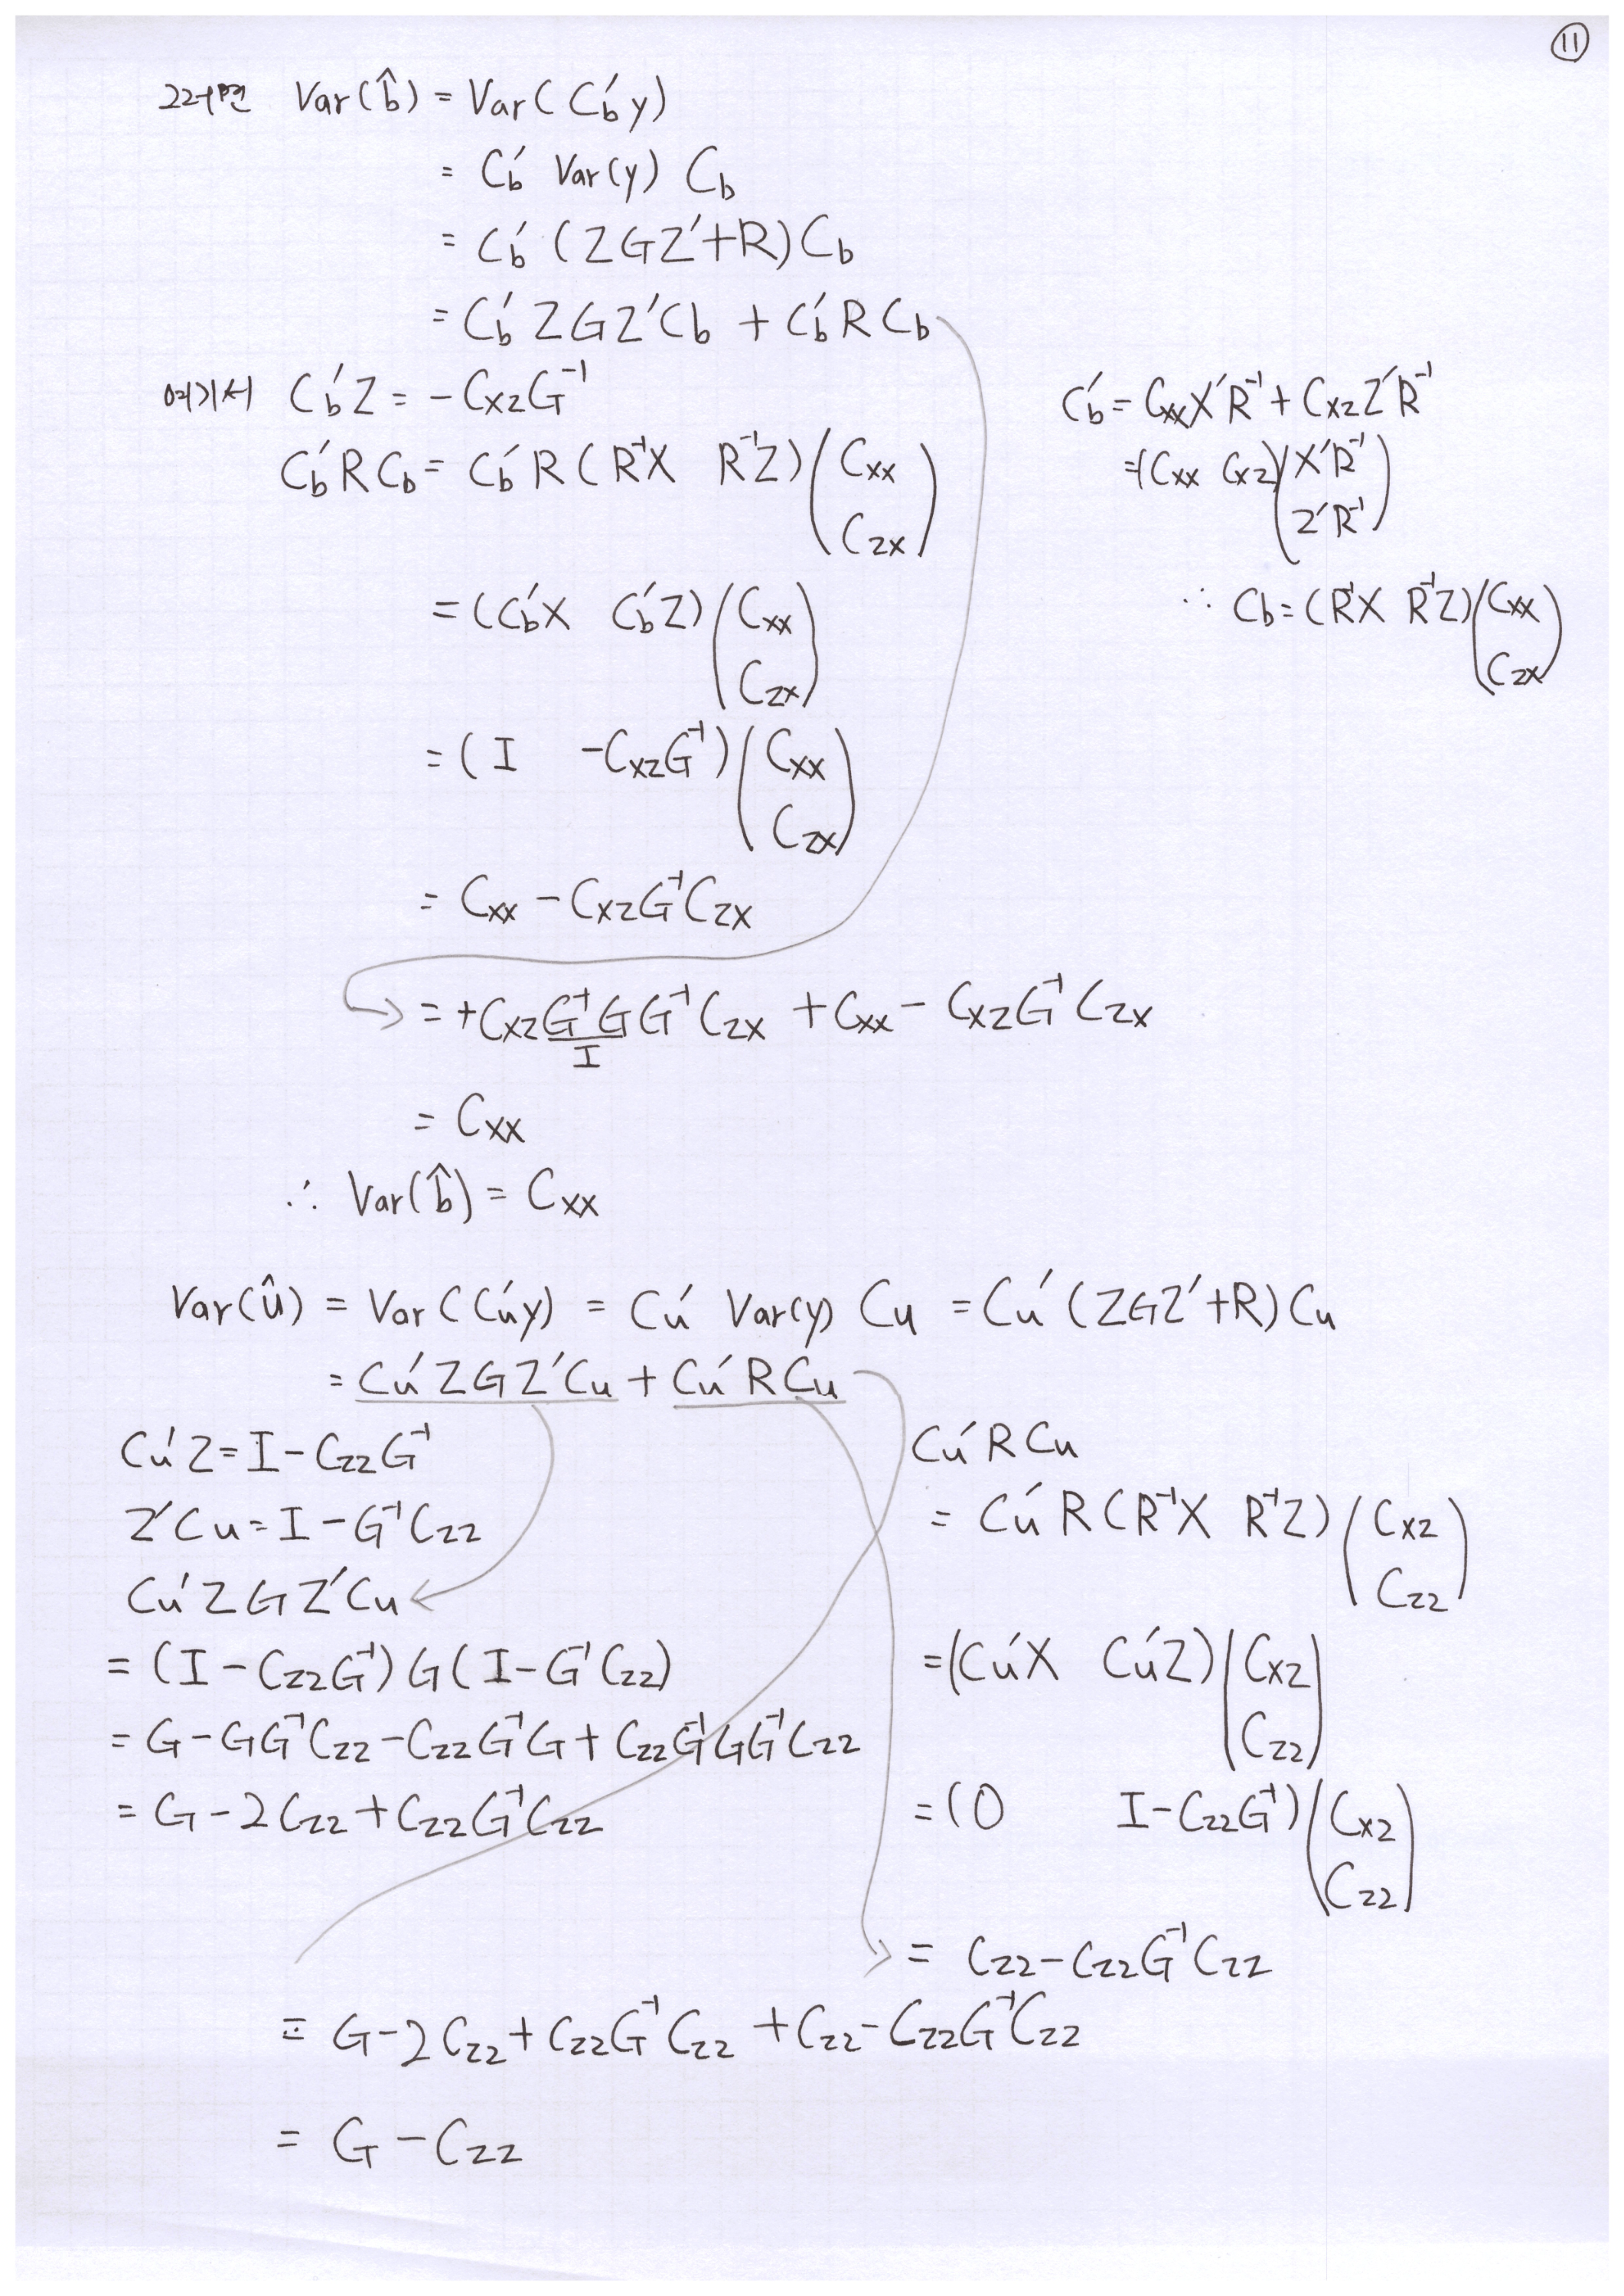 ⑪
그러면 Var(b̂) = Var(C_b′y)
= C_b′ Var(y) C_b
= C_b′ (ZGZ′+R) C_b
= C_b′ZGZ′C_b + C_b′RC_b
여기서 C_b′Z = −C_XZ G⁻¹
C_b′RC_b = C_b′R(R⁻¹X R⁻¹Z) (C_XX
C_ZX)
= (C_b′X C_b′Z) (C_XX
C_ZX)
= (I −C_XZ G⁻¹) (C_XX
C_ZX)
= C_XX − C_XZ G⁻¹ C_ZX
C_b′ = C_XX X′R⁻¹ + C_XZ Z′R⁻¹
= (C_XX C_XZ) (X′R⁻¹
Z′R⁻¹)
∴ C_b = (R⁻¹X R⁻¹Z) (C_XX
C_ZX)
= +C_XZ G⁻¹G G⁻¹ C_ZX + C_XX − C_XZ G⁻¹ C_ZX
I
= C_XX
∴ Var(b̂) = C_XX
Var(û) = Var(C_u′y) = C_u′ Var(y) C_u = C_u′ (ZGZ′+R) C_u
= C_u′ZGZ′C_u + C_u′RC_u
C_u′Z = I − C_ZZ G⁻¹
Z′C_u = I − G⁻¹C_ZZ
C_u′ZGZ′C_u
= (I − C_ZZ G⁻¹) G (I − G⁻¹C_ZZ)
= G − GG⁻¹C_ZZ − C_ZZ G⁻¹G + C_ZZ G⁻¹GG⁻¹C_ZZ
= G − 2C_ZZ + C_ZZ G⁻¹C_ZZ
C_u′RC_u
= C_u′R(R⁻¹X R⁻¹Z) (C_XZ
C_ZZ)
= (C_u′X C_u′Z) (C_XZ
C_ZZ)
= (0 I − C_ZZ G⁻¹) (C_XZ
C_ZZ)
= C_ZZ − C_ZZ G⁻¹C_ZZ
= G − 2C_ZZ + C_ZZ G⁻¹C_ZZ + C_ZZ − C_ZZ G⁻¹C_ZZ
= G − C_ZZ